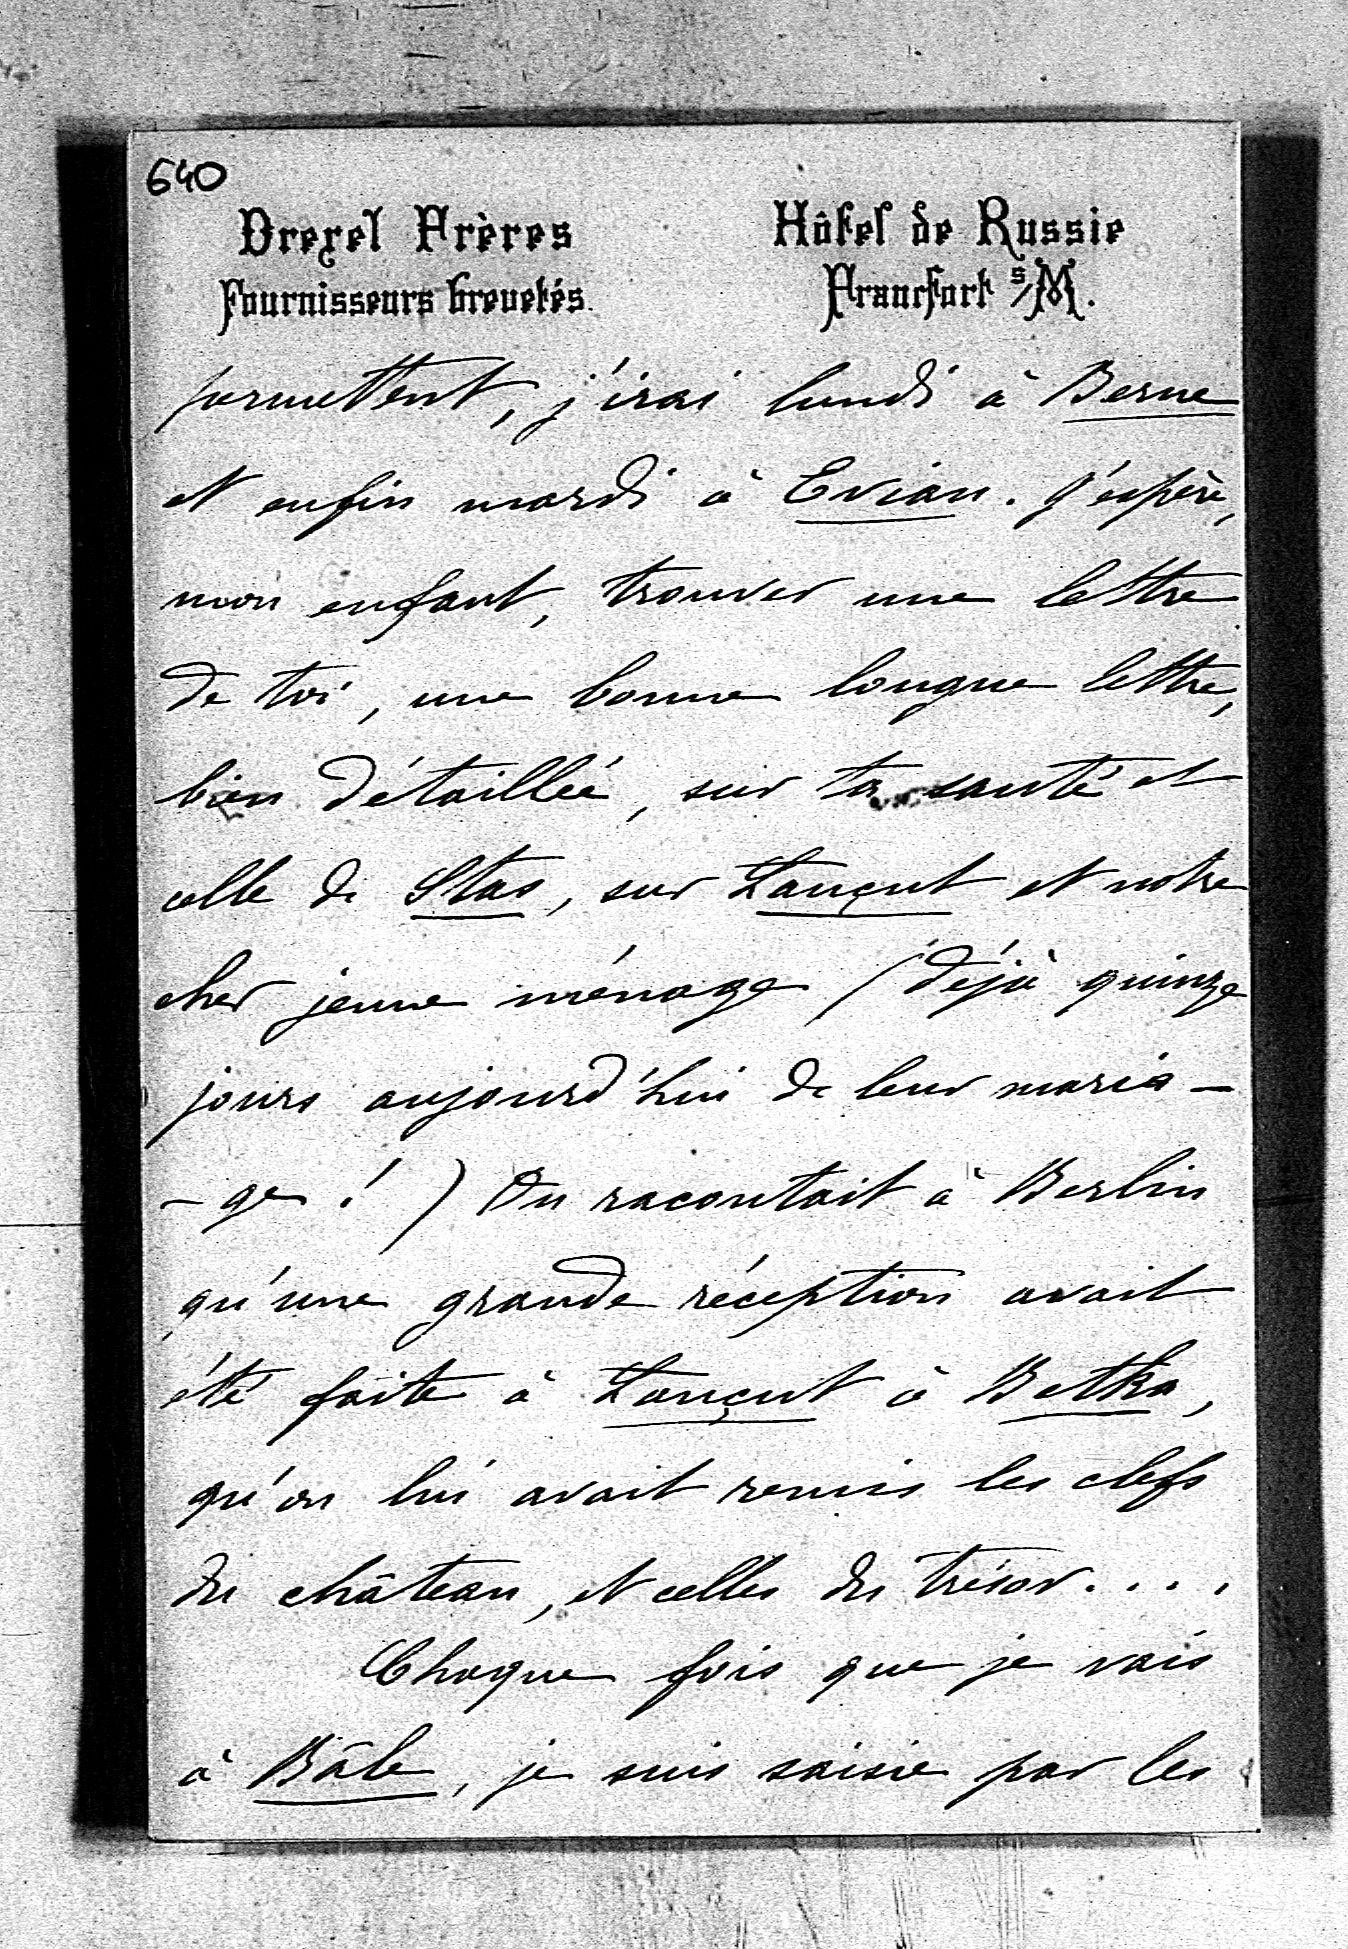 640
Drexel Frères
Fournisseurs brevetés.
Hôtel de Russie
Francfort s/M.
permettent, j'irai lundi à Berne
et enfin mardi à Evian. J'espère,
mon enfant, trouver une lettre
de toi, une bonne longue lettre,
bien détaillée, sur ta santé et
celle de Stas, sur Łançut et notre
cher jeune ménage (déjà quinze
jours aujourd'hui de leur maria-
-ge !) On racontait à Berlin
qu'une grande réception avait
été faite à Łançut à Betka,
qu'on lui avait remis les clefs
du château, et celles du trésor....
Chaque fois que je vais
à Bâle, je suis saisie par les